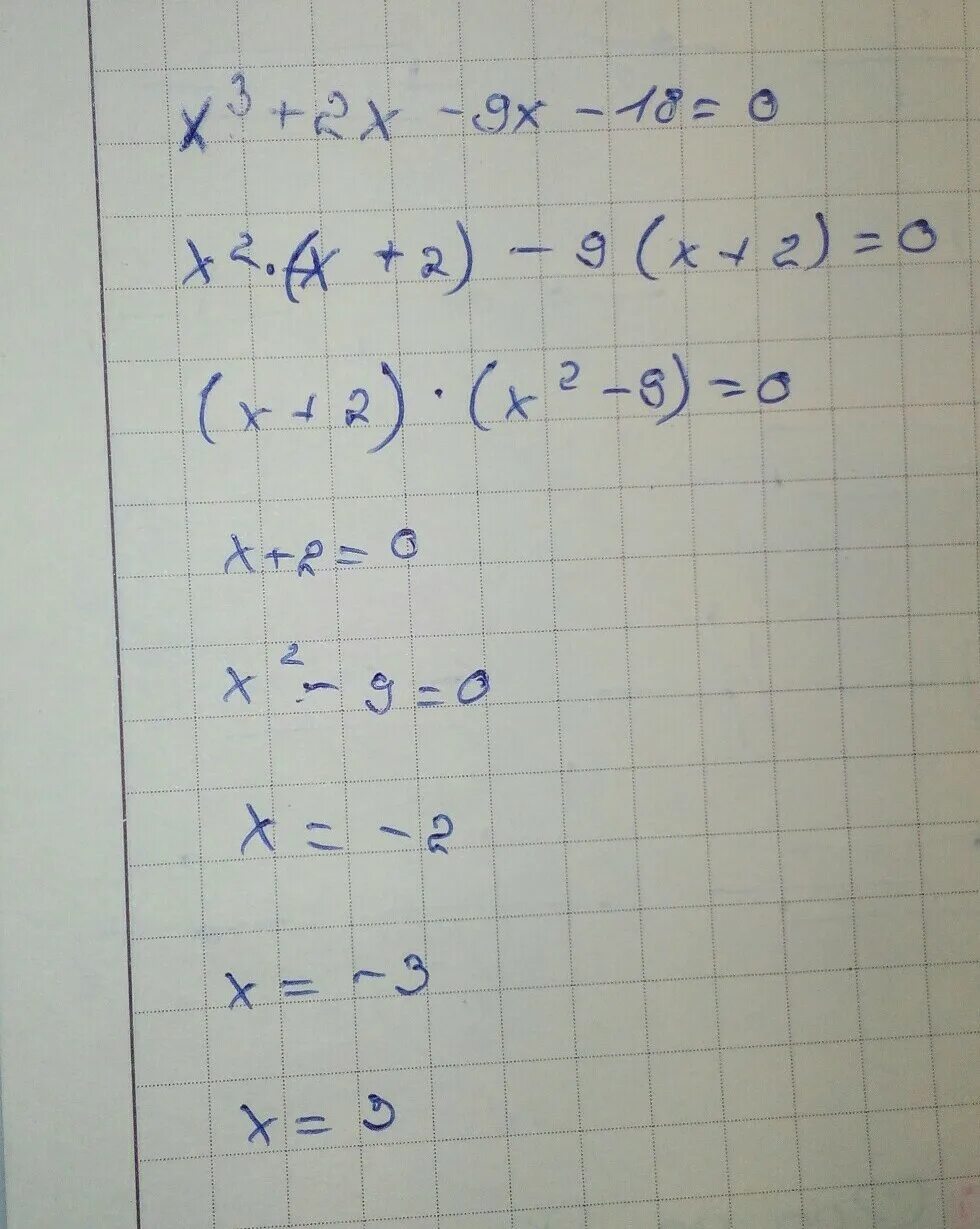 x³ + 2x - 9x - 18 = 0
x² · (x + 2) - 9 (x + 2) = 0
(x + 2) · (x² - 9) = 0
x + 2 = 0
x² - 9 = 0
x = -2
x = -3
x = 3